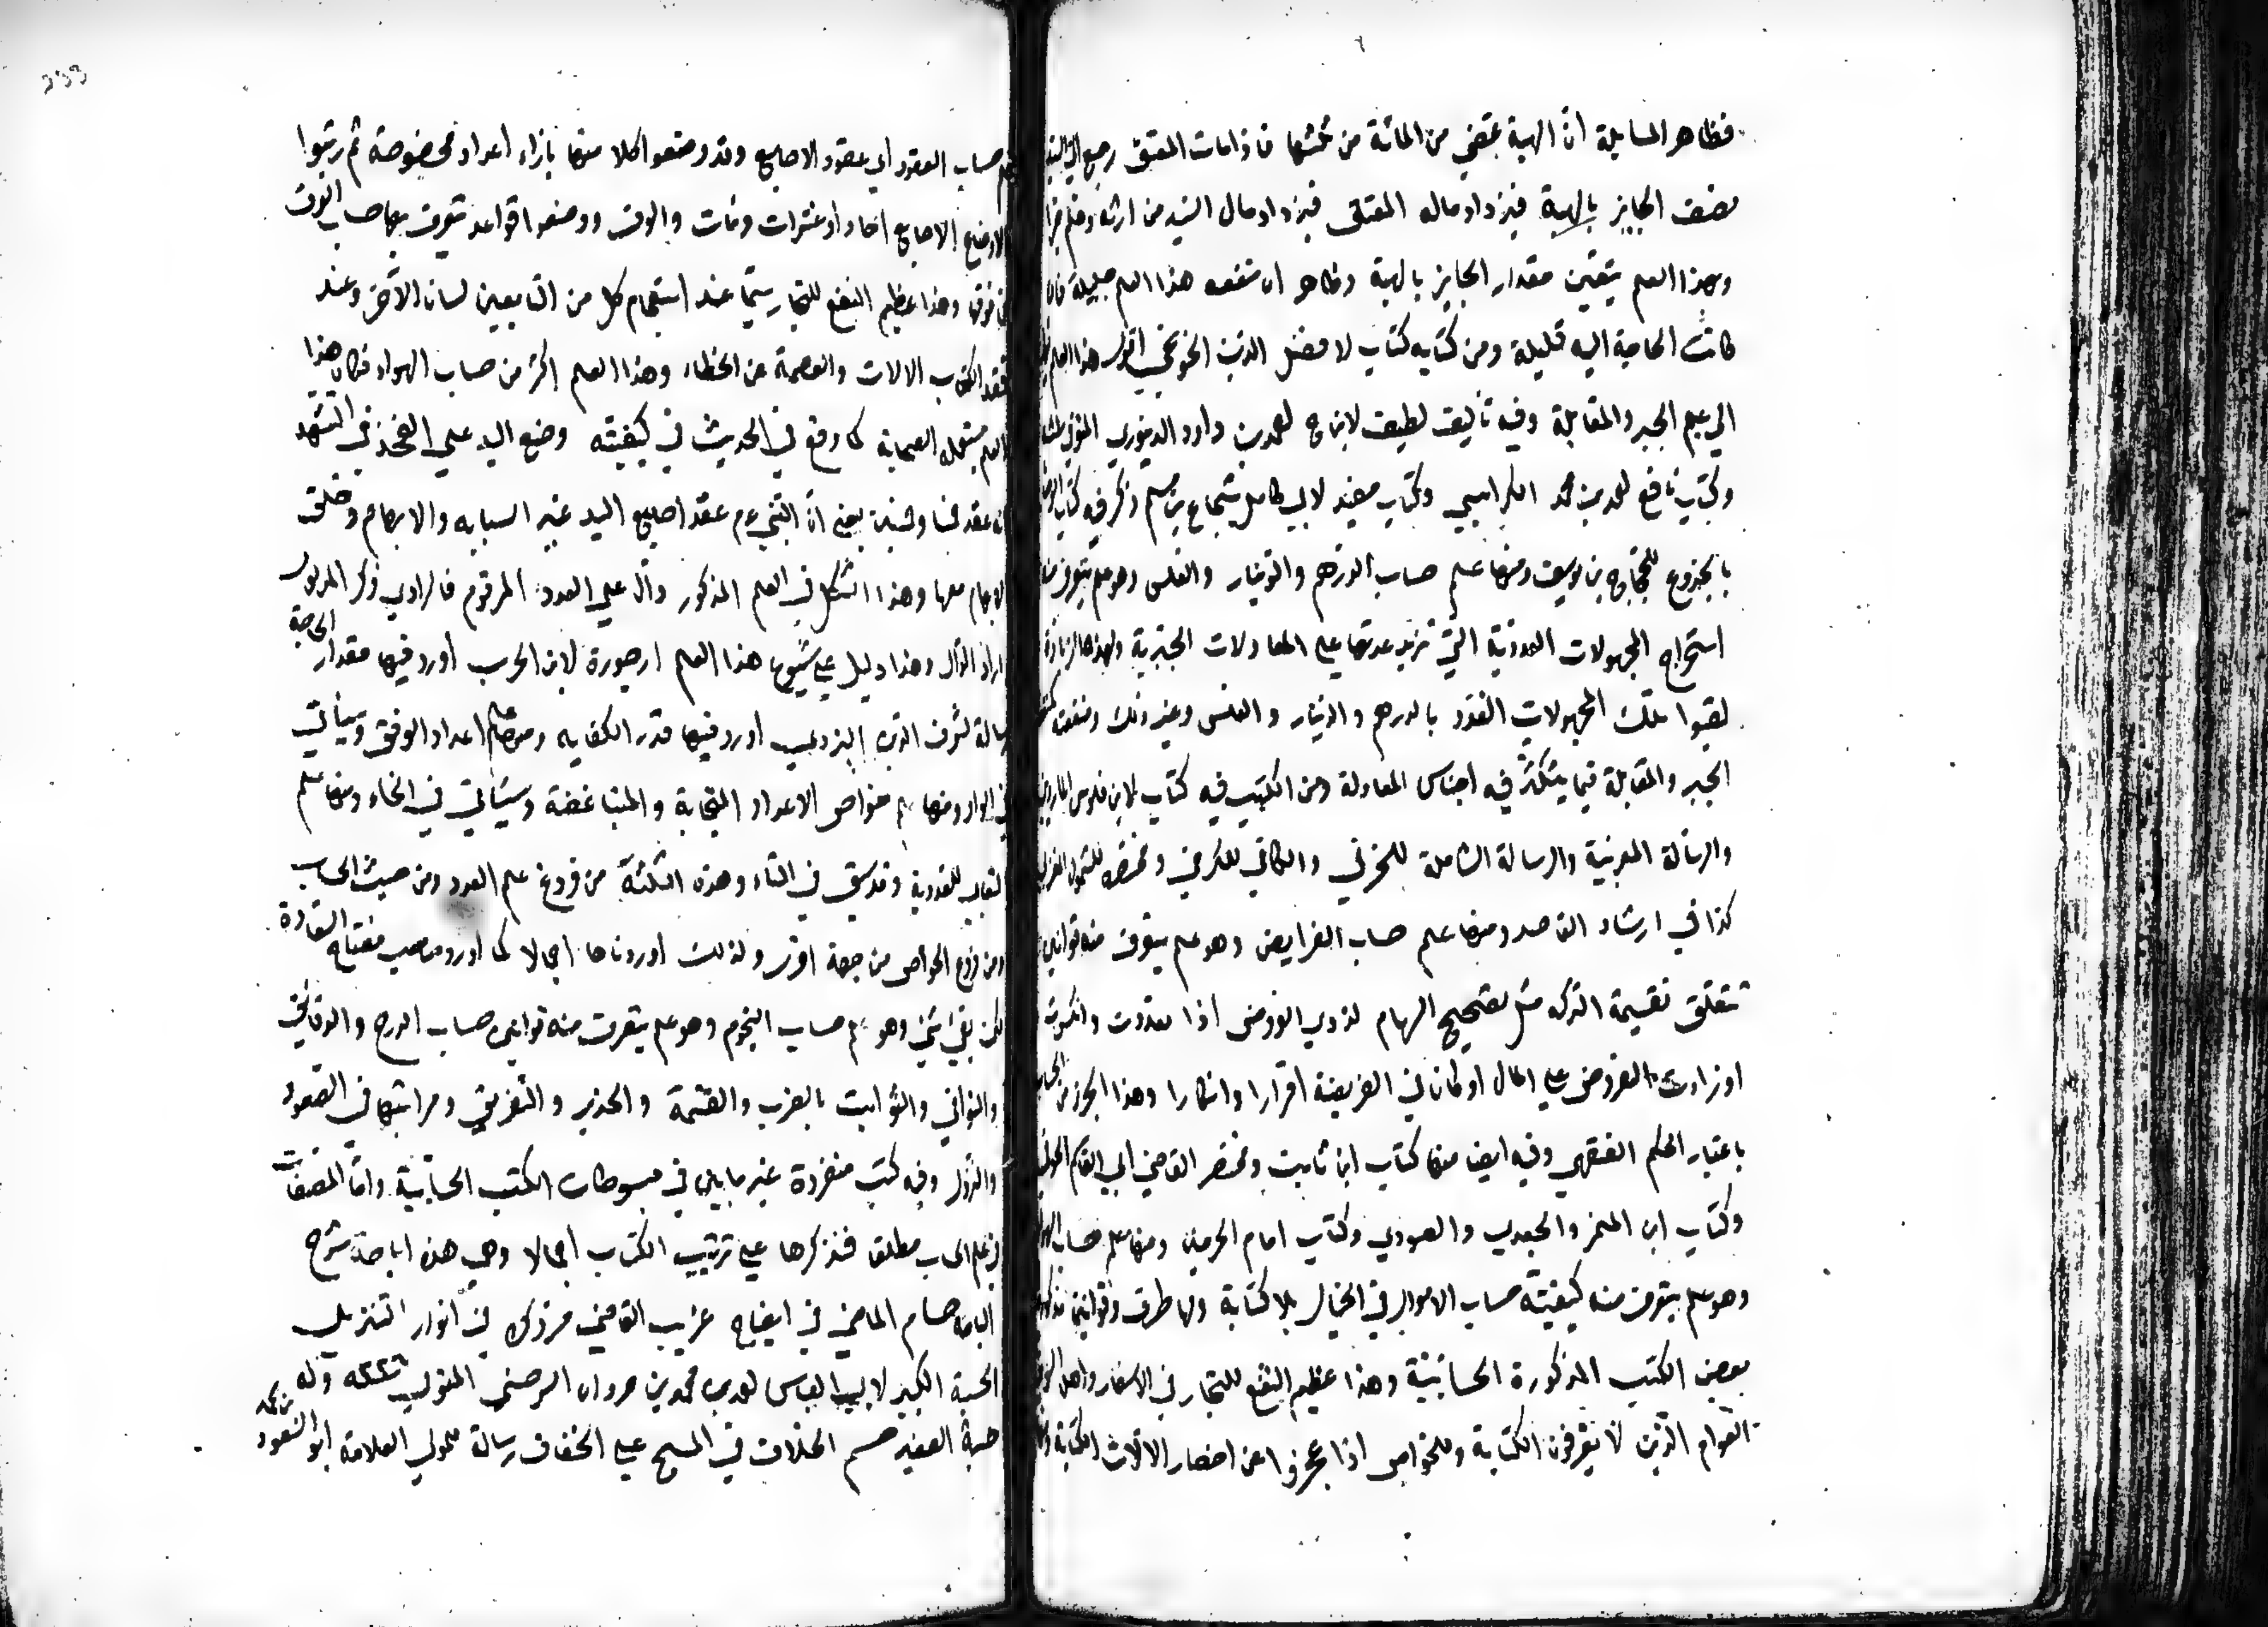 فظاهر المسايلة انّ الهبة بمقتضي من المائة من ثلثها فاذا مات المعتق رجع الي السيد
نصف الجايز بالهبة فيزداد ماله المعتق فيزداد مال السيد من ارثه وهلم جرا
وبهذا العلم يتعين مقدار الجايز بالهبة وظاهر ان منفعه هذا العلم جليلة فان
كانت الحاجة اليه قليلة ومن كتابه كتاب لا فضل الدين الخونجي اقول هذا العلم
الي علم الجبر والمقابلة وفيه تأليف لطيف لابي ح احمد بن داود الدينوري المتوفى
وكتاب نافع لاحمد بن محمد الكرابيسي وكتاب مفيد لابي كامل شجاع بن مسلم ذكر فيه كتاب الوصايا
بالجذور للحجاج بن يوسف ومنها علم حساب الدرهم والدينار والفلس وهو علم يتعرف منه
استخراج المجهولات العددية التي تزيد عدتها علي المعادلات الجبرية ولهذه الزيادة
لقبوا تلك المجهولات العدد بالدرهم والدينار والفلس وغير ذلك ومنفعته كمنفعة
الجبر والمقابلة فيما يتكثر فيه اجناس المعادلة ومن الكتب فيه كتاب لابن فلوس المارديني
والرسالة المغربية والرسالة الشاملة للخرقي والكافي للكرخي ومختصره للسموال المغربي
كذا في ارشاد القاصد ومنها علم حساب الفرايض وهو علم يتعرف منه قوانين
تتعلق تقسيمة التركه مثل تصحيح السهام لذوي الفروض اذا تعددت وانكسرت
او زادت الفروض علي المال او كان في الفريضة اقرارا وانكارا وهذا الجزء من الحساب
باعتبار الحكم الفقهي وفيه ايضا منها كتاب ابن ثابت ومختصر القاضي ابي القاسم الحوفي
وكتاب ابن المنمر والجعدي والصودي وكتاب امام الحرمين ومنها علم حساب الهواء
وهو علم يتعرف منه كيفيته حساب الاموال في الخيال بلا كتابة ولها طرق وقوانين مذكورة
بعض الكتب المذكورة الحسابية وهذا عظيم النفع للتجار في الاسفار واهل السوق
العوام الذين لا يعرفون الكتابة وللخواص اذا عجزوا عن احضار الالات الكتابة
علم حساب العقود اي عقود الاصابع وقد وضعوا كلا منها بازاء اعداد مخصوصة ثم رتبوا
لاوضاع الاصابع احادا وعشرات ومئات والوف ووضعوا قواعد يتعرف بها حساب الوف
فما فوقها وهذا عظيم النفع للتجار سيما عند استعجام كل من التبايعين لسان الاخر وعند
فقد الكتاب الالات والعصمة عن الخطاء وهذا العلم اكثر من حساب الهواء فكان هذا
العلم يستعمله الصحابة كما وقع في الحديث في كيفيته وضع اليد علي الفخذ في التشهد
انه عقد خمسا وخمسين يعني انّ النبي ءم عقد اصابع اليد غير السبابه والابهام وحلق
الابهام معها وهذا الشكل في العلم المذكور دال علي العدد المرقوم فالراوي ذكر المدلول
واراد الدال وهذا دليل علي شيوع هذا العلم ارجوزة لابن الحرب أورد فيها مقدار الحاجة
رسالة لشرف الدين اليزدي أورد فيها قدر الكفايه ومنها علم اعداد الوفق وسيأتي
في الواو ومنها علم خواص الاعداد المتحابة والمتباغضة وسيأتي في الخاء ومنها علم
التعابي العددية وقد سبق في التاء وهذه الثلثة من فروع علم العدد ومن حيث الحساب
ومن فروع الخواص من جهة اخرى ولذلك اوردناها اجمالا كما أورد صاحب مفتاح السعادة
لكن بقي شئ وهو علم حساب النجوم وهو علم يتعرف منه قوانين حساب الدرج والدقايق
والثواني والثوالث بالضرب والقسمة والجذر والتفريق ومراتبها في الصعود
والنزول وفيه كتب منفردة غير ما بين في مبسوطات الكتب الحسابية واما المصنفات
في علم الحساب مطلقا فنذكرها علي ترتيب الكتاب اجمالا وهي هذه اباحة شرح
الباحة حسام الماضي في ايضاح غريب القاضي مر ذكره في انوار التنزيل
الحسبة الكبير لابي العباس احمد بن محمد بن مروان السرخسي المتوفى وله
حسبة الصغير حسم الخلاف في المسح علي الخفاف رسالة لمولي العلامة ابو السعود بن محمد